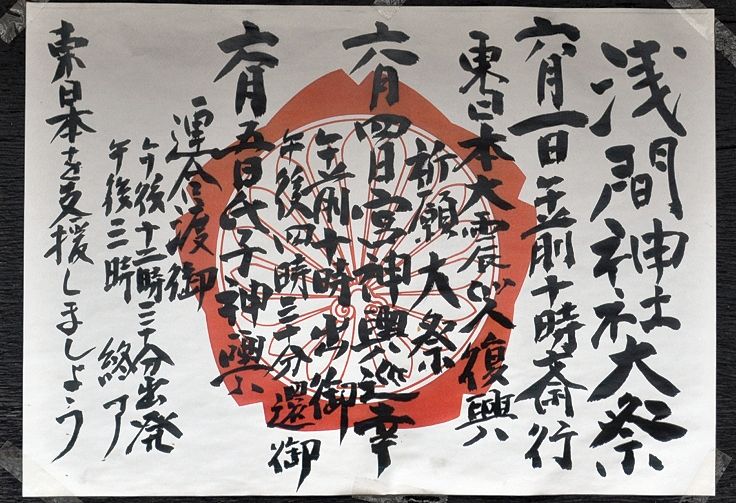 浅間神社大祭
六月一日午前十時斎行
東日本大震災復興
祈願大祭
六月四日宮神輿巡幸
午前十時出御
午後四時三十分還御
六月五日氏子神輿
連合渡御
午後十二時三十分出発
午後三時終了
東日本を支援しましょう